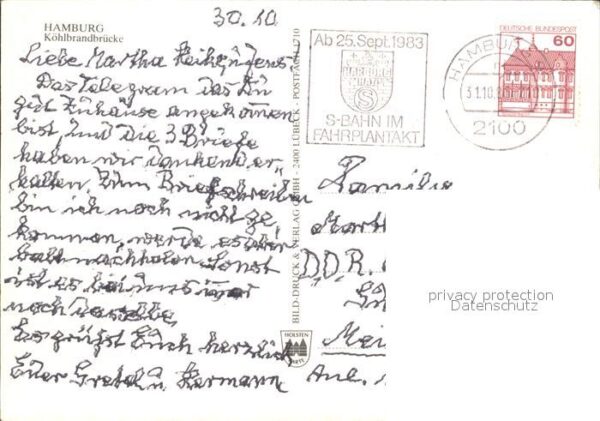 30.10
HAMBURG
Köhlbrandbrücke
Liebe Martha
Das Telegram das Du
gut Zuhause angekommen
bist, und die 3 Briefe
haben wir dankend er-
halten, Zum Briefschreiben
bin ich noch nicht ge
kommen, werde es aber
balt nachholen. Sonst
ist es bei uns
noch das selbe
Es grüßt Euch herzlich
Euer Gretel u. Hermann
BILD-DRUCK & VERLAG GMBH - 2400 LÜBECK - POSTFACH 1210
HOLSTEN
Ab 25.Sept.1983
S
S-BAHN IM
FAHRPLANTAKT
HAMBURG
31.10.
2100
DEUTSCHE BUNDESPOST
60
Familie
Marth
D.D.R.
Mei
privacy protection
Datenschutz